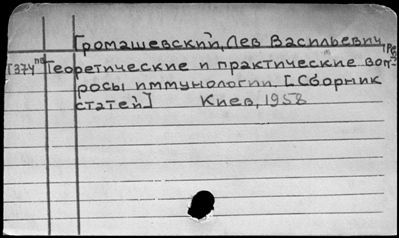 Громашевский, Лев Васильевич, [Ре
Т374 пв Теоретические и практические воп-
росы иммунологии. [Сборник
статей] Киев, 1958